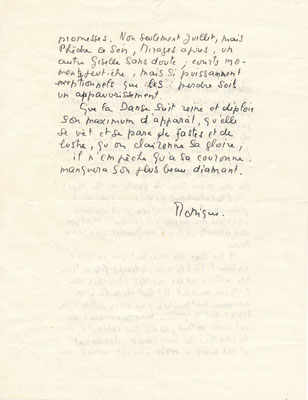 promesses. Non seulement Juillet, mais
Phèdre ce soir, Mirages après, un
autre Giselle sans doute, courts mo-
ments peut-être, mais si puissamment
exceptionnels que les perdre soit
un appauvrissement.
Que la Danse soit reine et déploie
son maximum d'apparât, qu'elle
se vêt et se pare de fastes et de
lustre, qu'on claironne sa gloire,
il n'empêche qu'à sa couronne
manquera son plus beau diamant.
Monique.